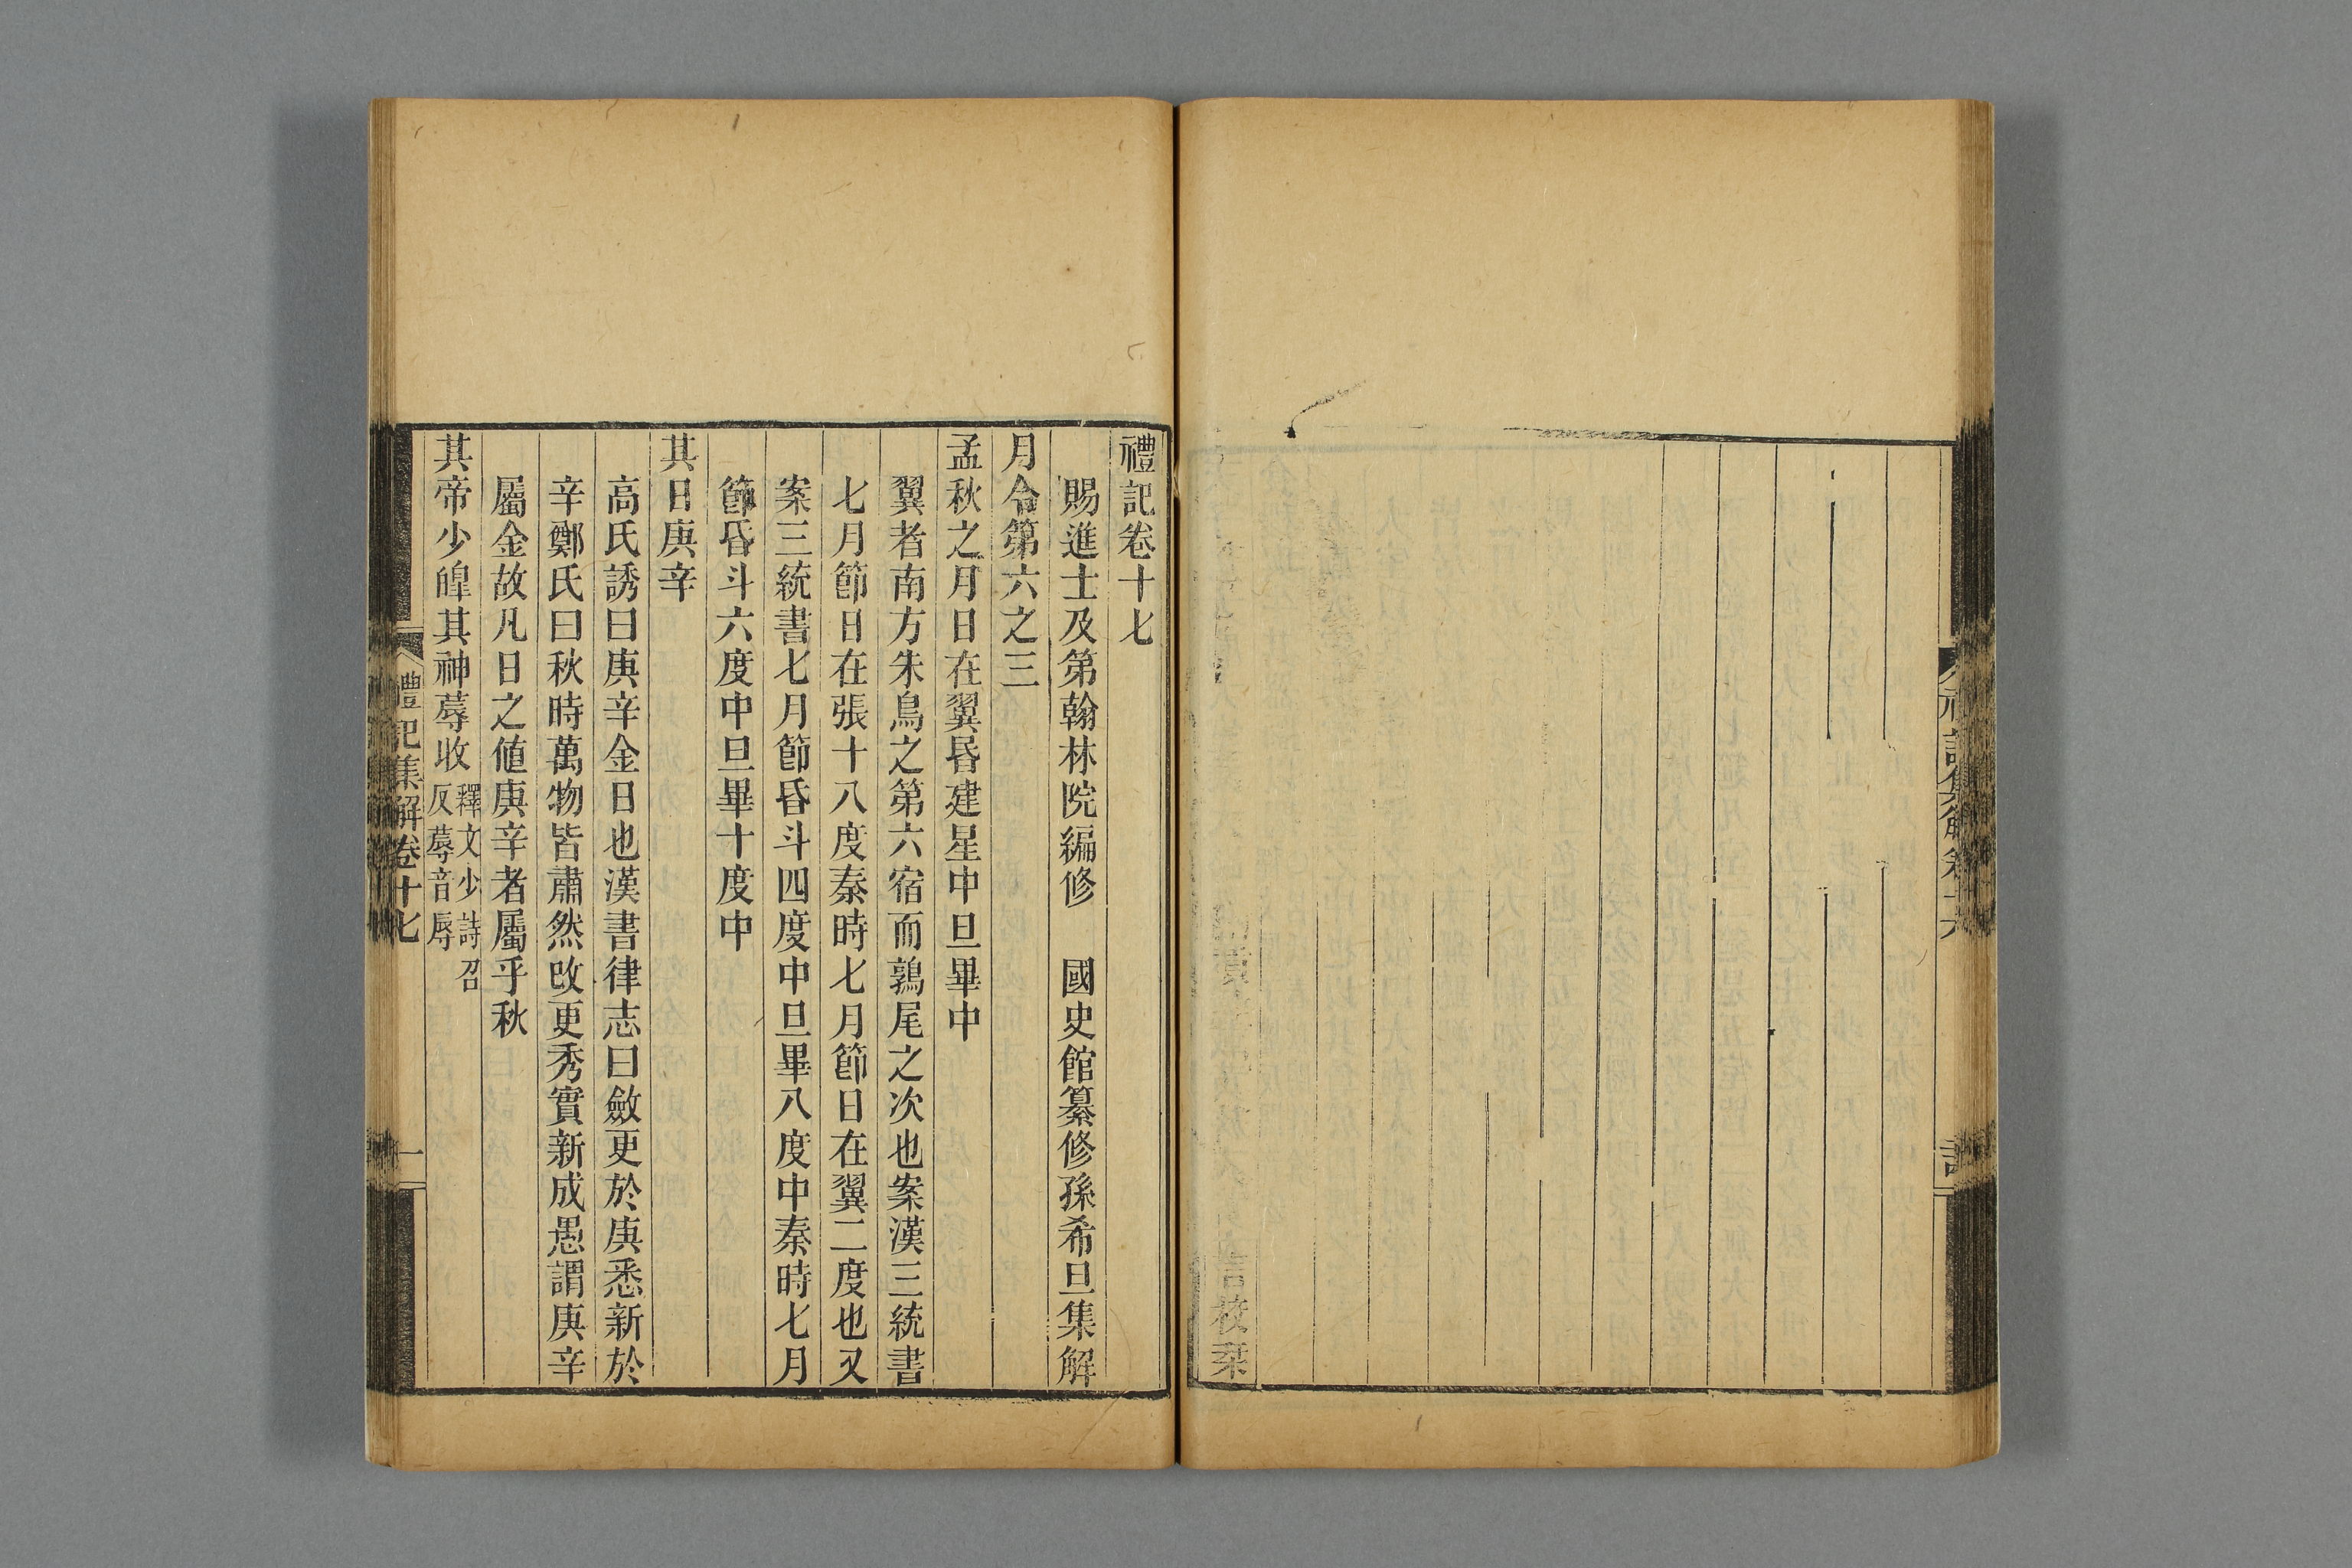 校栞
禮記卷十七
賜進士及第翰林院編修　國史館纂修孫希旦集解
月令第六之三
孟秋之月日在翼昏建星中旦畢中
翼者南方朱鳥之第六宿而鶉尾之次也案漢三統書
七月節日在張十八度秦時七月節日在翼二度也又
案三統書七月節昏斗四度中旦畢八度中秦時七月
節昏斗六度中旦畢十度中
其日庚辛
高氏誘曰庚辛金日也漢書律志曰斂更於庚悉新於
辛鄭氏曰秋時萬物皆肅然改更秀實新成愚謂庚辛
屬金故凡日之値庚辛者屬乎秋
其帝少皞其神蓐收
釋文少詩召
反蓐音辱
禮記集解卷十七
一